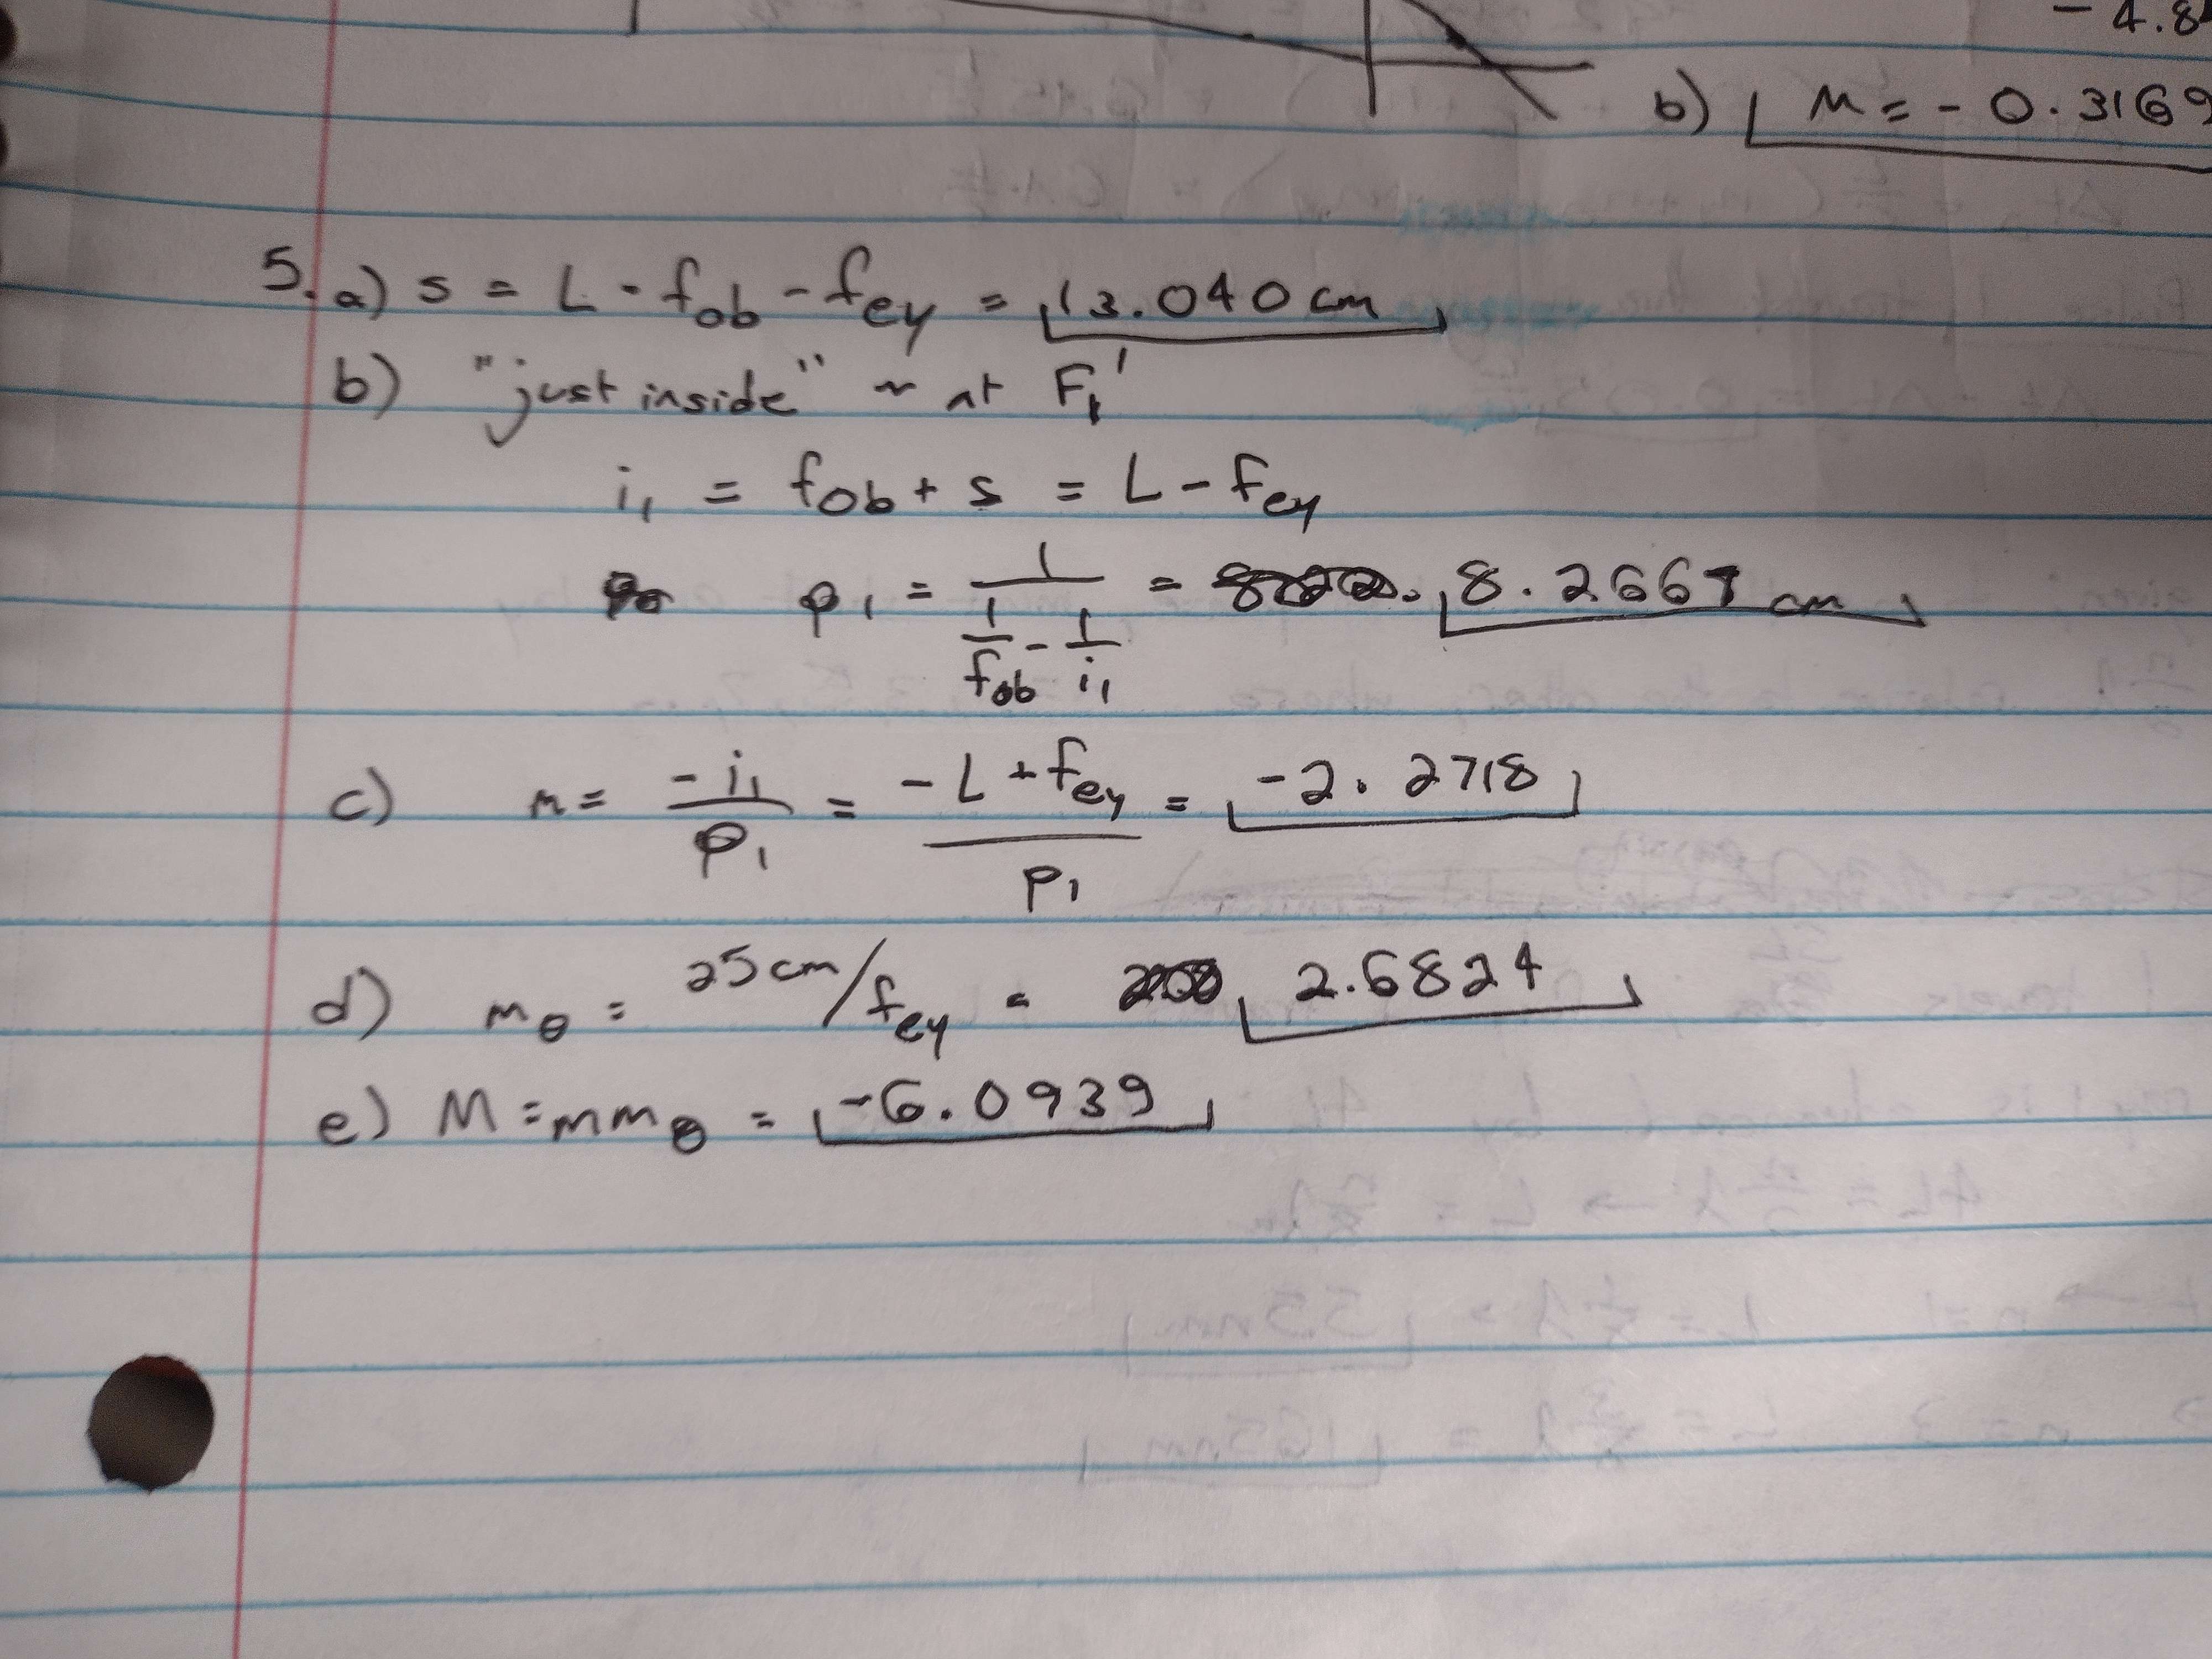 - 4.8
b) M = - 0.3169
5. a) s = L - fob - fey = 13.040 cm
b) "just inside" ~ at F₁'
i₁ = fob + s = L - fey
p₁ = 1 / (1/fob - 1/i₁) = 8.2667 cm
c) m = -i₁/p₁ = (-L + fey)/p₁ = -2.2718
d) mθ = 25 cm/fey = 2.6824
e) M = m mθ = -6.0939